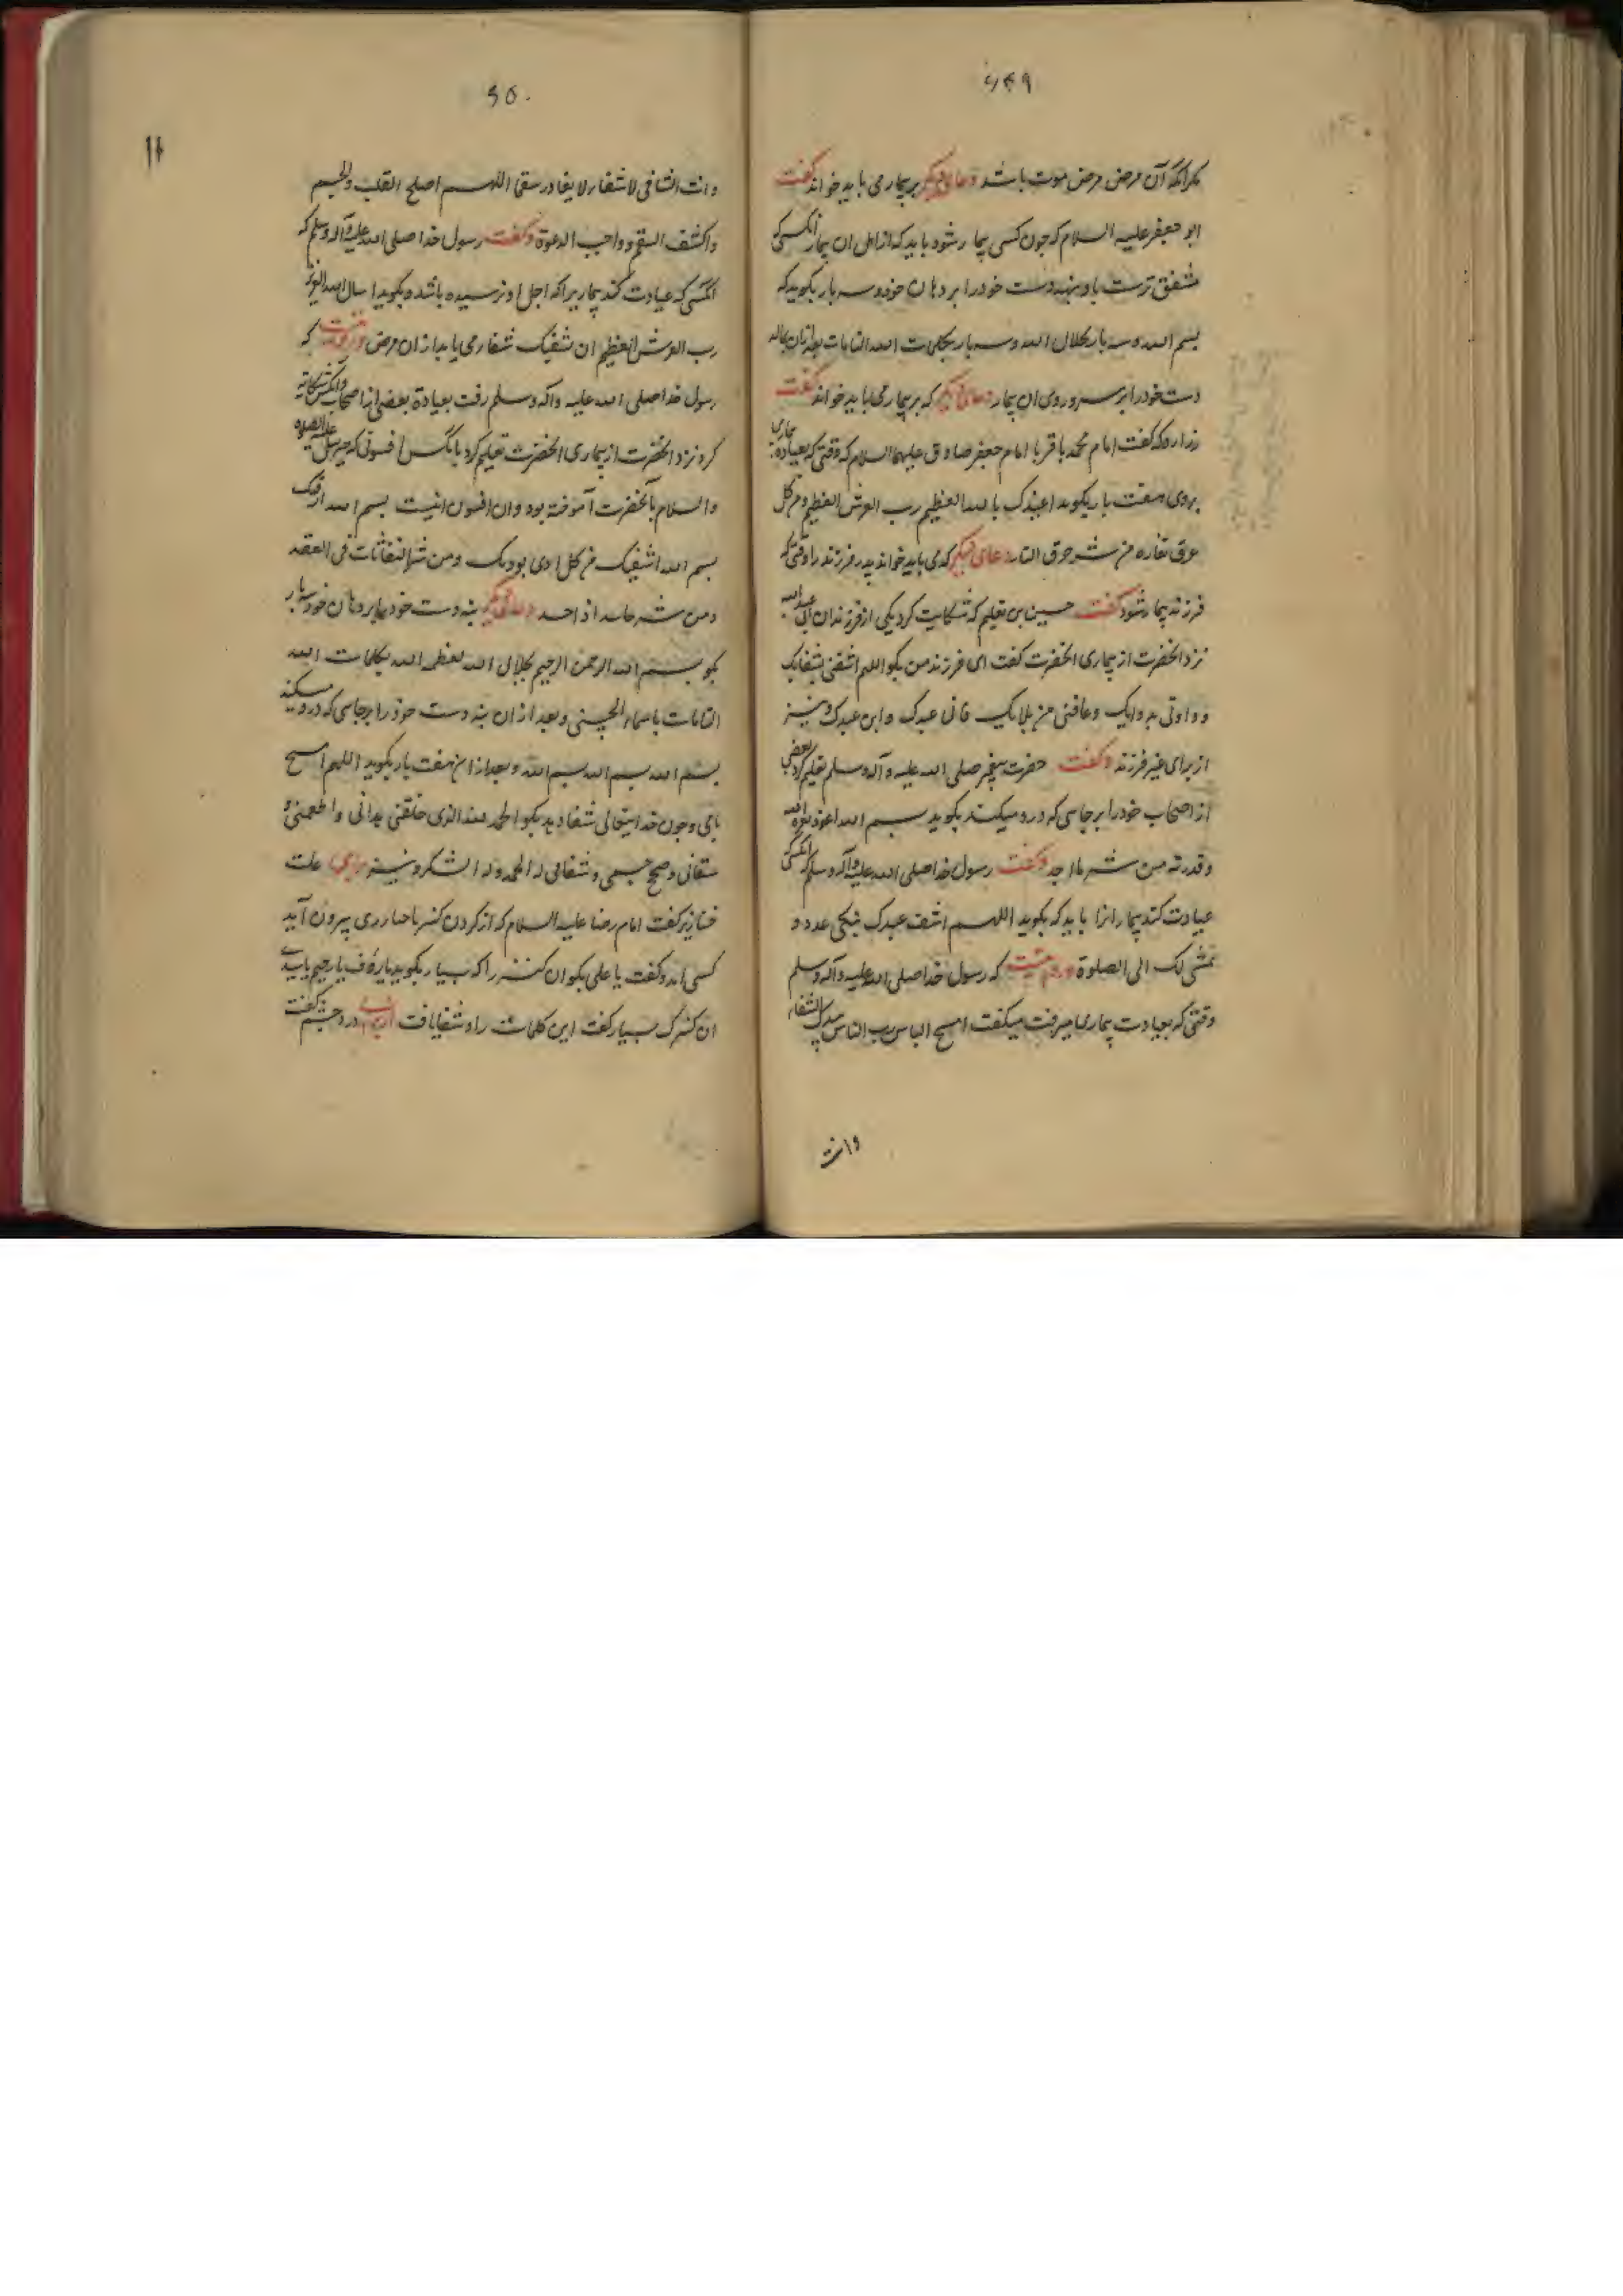 ۶۴۹
مگر آنکه آن مرض مرض موت باشد دعای دیگر بر بیماری باید خواند گفت
ابو جعفر علیه السلام که چون کسی بیمار شود باید که از اهل ان بیمار انکسی که
مشفق ترست باو بنهد دست خود را بر دهان خود و سه بار بگوید که
بسم الله و سه بار بجلال الله و سه بار بکلمات الله التامات بعد از ان بمالد
دست خود را بر سر و روی ان بیمار دعای دیگر که بر بیمار می باید خواند گفت
زراره که گفت امام محمد باقر یا امام جعفر صادق علیهما السلام که وقتی که بعیادة بیماری
بروی هفت بار بگوید اعیذک بالله العظیم رب العرش العظیم من کل
عرق نعاره من شر حرق النار دعای دیگر که می باید خواند پدر فرزند را وقتی که
فرزند بیمار شود گفت حسین بن نعیم که شکایت کرد یکی از فرزندان ابی عبد الله
نزد الحضرت از بیماری الحضرت گفت ای فرزند من بگو اللهم اشفنی بشفایک
و داونی بدوایک و عافنی من بلایک فانی عبدک و ابن عبدک و نیز
از برای غیر فرزند و گفت حضرت پیغمبر صلی الله علیه و آله و سلم تعلیم کرد بعضی
از اصحاب خود را بر جایی که درد میکند بگوید بسم الله اعوذ بعزة الله
و قدرته من شر ما اجد و گفت رسول خدا صلی الله علیه و آله و سلم که انکسی که
عیادت کند بیمار انرا باید که بگوید اللهم اشف عبدک ینکی عدو و
تمشی لک الی الصلوة که رسول خدا صلی الله علیه و آله و سلم
وقتی که بعیادت بیماری میرفت میگفت امسح الباس رب الناس بیدک الشفاء
وانت
۶۵۰
وانت الشافی لا شفاء لا یغادر سقما اللهم اصلح القلب والجسم
واکشف السقم و واجب الدعوة و گفت رسول خدا صلی الله علیه و آله و سلم که
انکسی که عیادت کند بیماریرا که اجل او نرسیده باشد و بگوید اسال الله العظیم
رب العرش العظیم ان شفیک شفا می یابد از ان مرض که
رسول خدا صلی الله علیه و آله و سلم رفت بعیادة بعضی از اصحاب و انکس شکایت
کرد نزد الحضرت از بیماری الحضرت تعلیم کرد بانکس افسونی که جبرییل علیه الصلوه
والسلام بآنحضرت آموخته بود و ان افسون اینست بسم الله ارقیک
بسم الله اشفیک من کل ادی یودیک و من شر النفاثات فی العقد
و من شر حاسد اذا حسد دعای دیگر بنه دست خود را بر دهان خود سه بار
بگو بسم الله الرحمن الرحیم بجلال الله بعظمه الله بکلمات الله
التامات باسماء الحسنی و بعد از ان بنه دست خود را بر جایی که درد میکند
بسم الله بسم الله بسم الله و بعد از ان هفت بار بگوید اللهم امسح
مابی و چون خدایتعالی شفا دهد بگو الحمد لله الذی خلقنی فهدانی و اطعمنی و
سقانی و صحح جسمی و شفانی له الحمد و له الشکر و نیز علت
خنازیر گفت امام رضا علیه السلام که از گردن کنیز ما خنازیری بیرون آید
کسی امد و گفت یا علی بگو ان کنیز را که بسیار بگوید یا رؤف یا رحیم یا سیدی
ان کنیزک بسیار گفت این کلمات را و شفا یافت درد چشم گفت